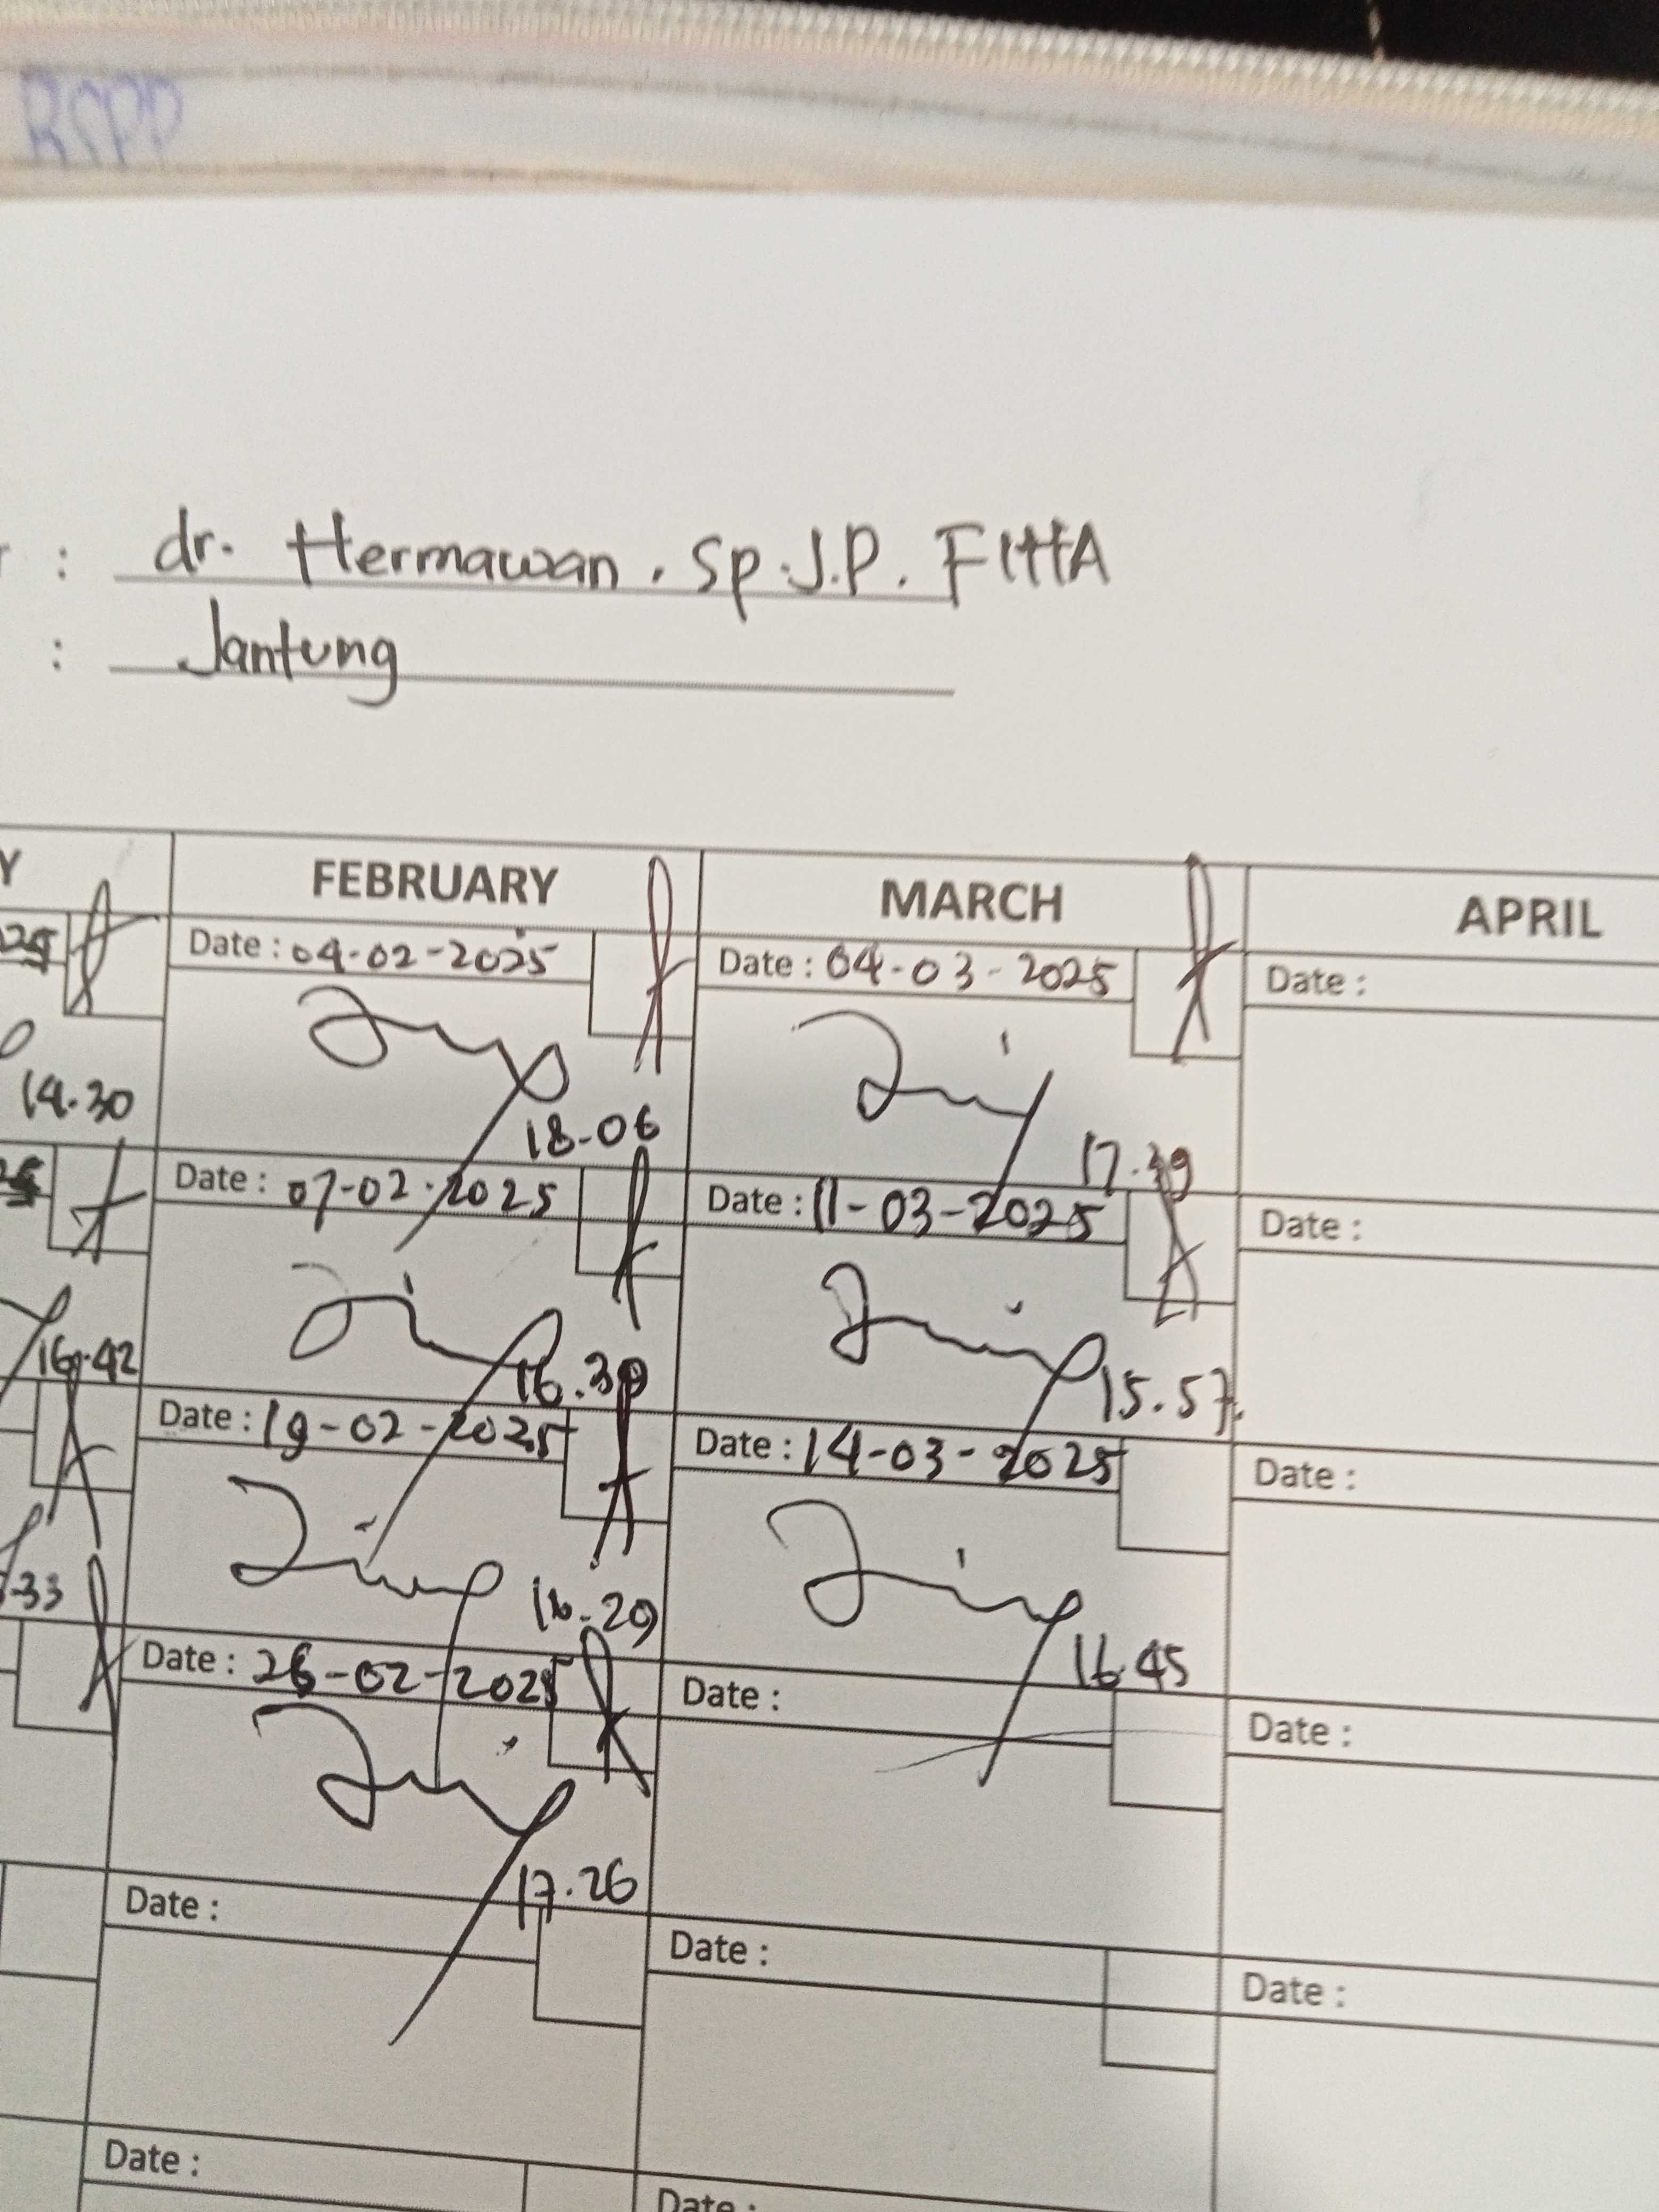 RSPP
: dr. Hermawan. Sp.J.P. FIHA
: Jantung
Y FEBRUARY MARCH APRIL
Date : 04-02-2025 Date : 04-03-2025 Date :
14.30 18-06 17.39
Date : 07-02-2025 Date : 11-03-2025 Date :
16.42 15.57.
Date : 19-02-2025 Date : 14-03-2025 Date :
-33 16.29 16.45
Date : 26-02-2025 Date : Date :
17.26
Date : Date : Date :
Date : Date :